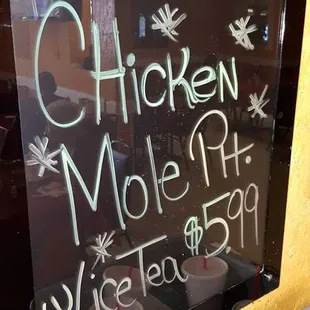 Chicken
Mole Plt.
$5.99
w/ice Tea